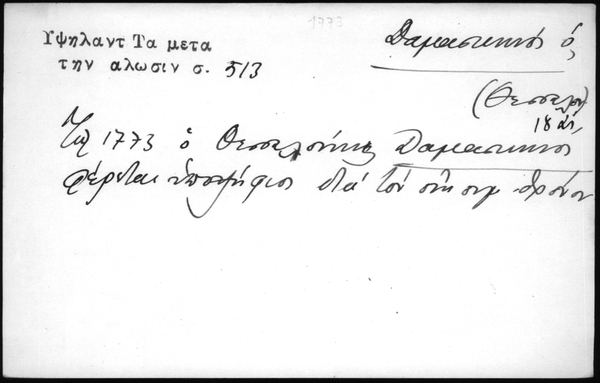 1773
Υψηλαντ Τα μετα
την αλωσιν σ. 513
Δαμασκηνός ὁ
(Θεσσαλον)
18 αἰ.
Τῷ 1773 ὁ Θεσσαλονίκης Δαμασκηνος
φέρεται ὑποψήφιος διά τόν θρόνον